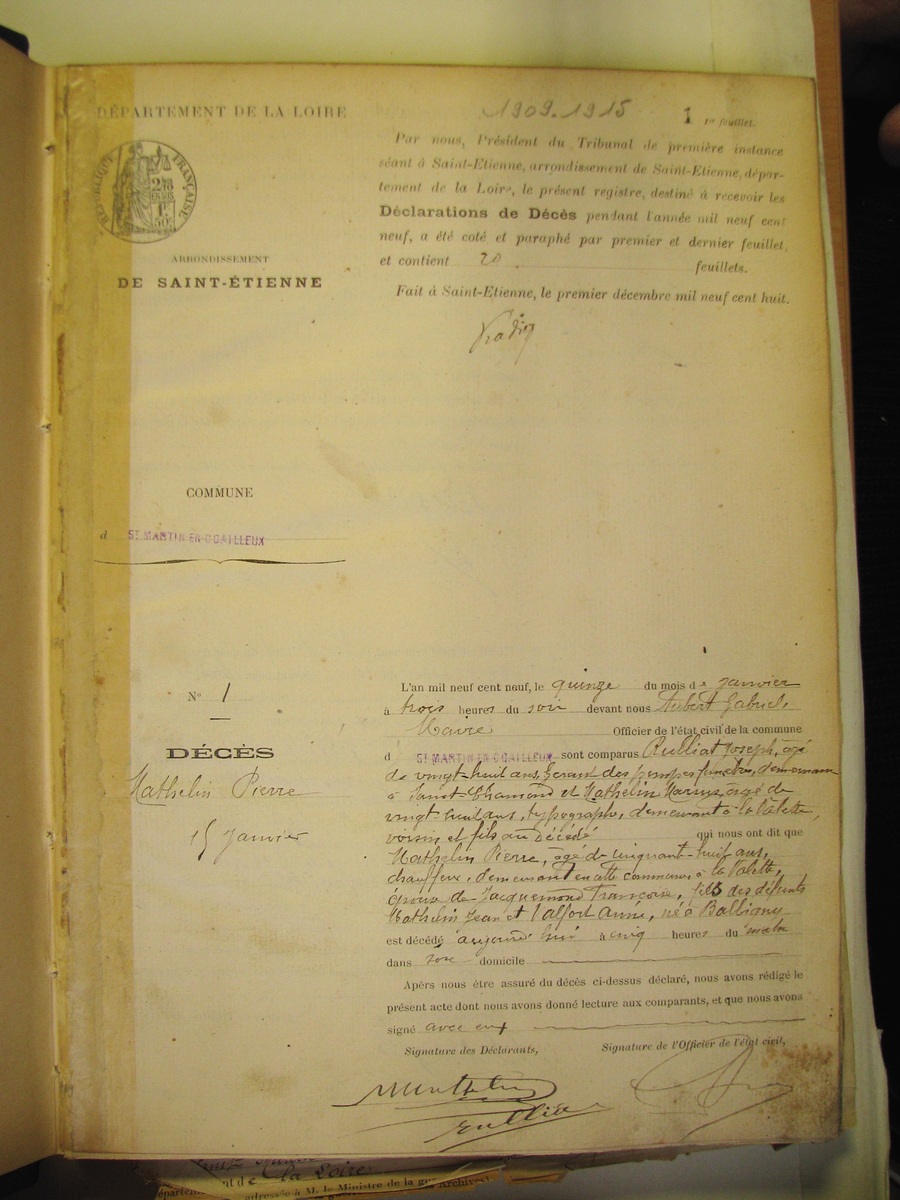 DÉPARTEMENT DE LA LOIRE
1909-1915
1 1er feuillet.
RÉPUBLIQUE FRANÇAISE
2/10 EN SUS
1F 50C
Par nous, Président du Tribunal de première instance
séant à Saint-Etienne, arrondissement de Saint-Etienne, dépar-
tement de la Loire, le présent registre, destiné à recevoir les
Déclarations de Décès pendant l'année mil neuf cent
neuf, a été coté et paraphé par premier et dernier feuillet,
et contient 20 feuillets.
Fait à Saint-Etienne, le premier décembre mil neuf cent huit.
ARRONDISSEMENT
DE SAINT-ÉTIENNE
COMMUNE
d ST MARTIN-EN-COAILLEUX
N° 1
DÉCÈS
Mathelin Pierre
15 Janvier
L'an mil neuf cent neuf, le quinze du mois de Janvier
à trois heures du soir devant nous Aubert Gabriel,
Maire Officier de l'état civil de la commune
d ST MARTIN-EN-COAILLEUX sont comparus Rulliat Joseph, âgé
de vingt-huit ans, Gérant des pompes funèbres, demeurant
à Saint-Chamond et Mathelin Marius, âgé de
vingt-huit ans, typographe, demeurant à la Valette,
voisin et fils au décédé qui nous ont dit que
Mathelin Pierre, âgé de cinquante-huit ans,
chauffeur, demeurant en cette commune, à la Valette,
époux de Jacquemond Françoise, fils des défunts
Mathelin Jean et Lalfort Anne, né à Balbigny
est décédé aujourd'hui à cinq heures du matin
dans son domicile
Apèrs nous être assuré du décès ci-dessus déclaré, nous avons rédigé le
présent acte dont nous avons donné lecture aux comparants, et que nous avons
signé avec eux
Signature des Déclarants, Signature de l'Officier de l'état civil,
Mathelin
Rulliat
de la Loire
adressée à M. le Ministre de la guerre